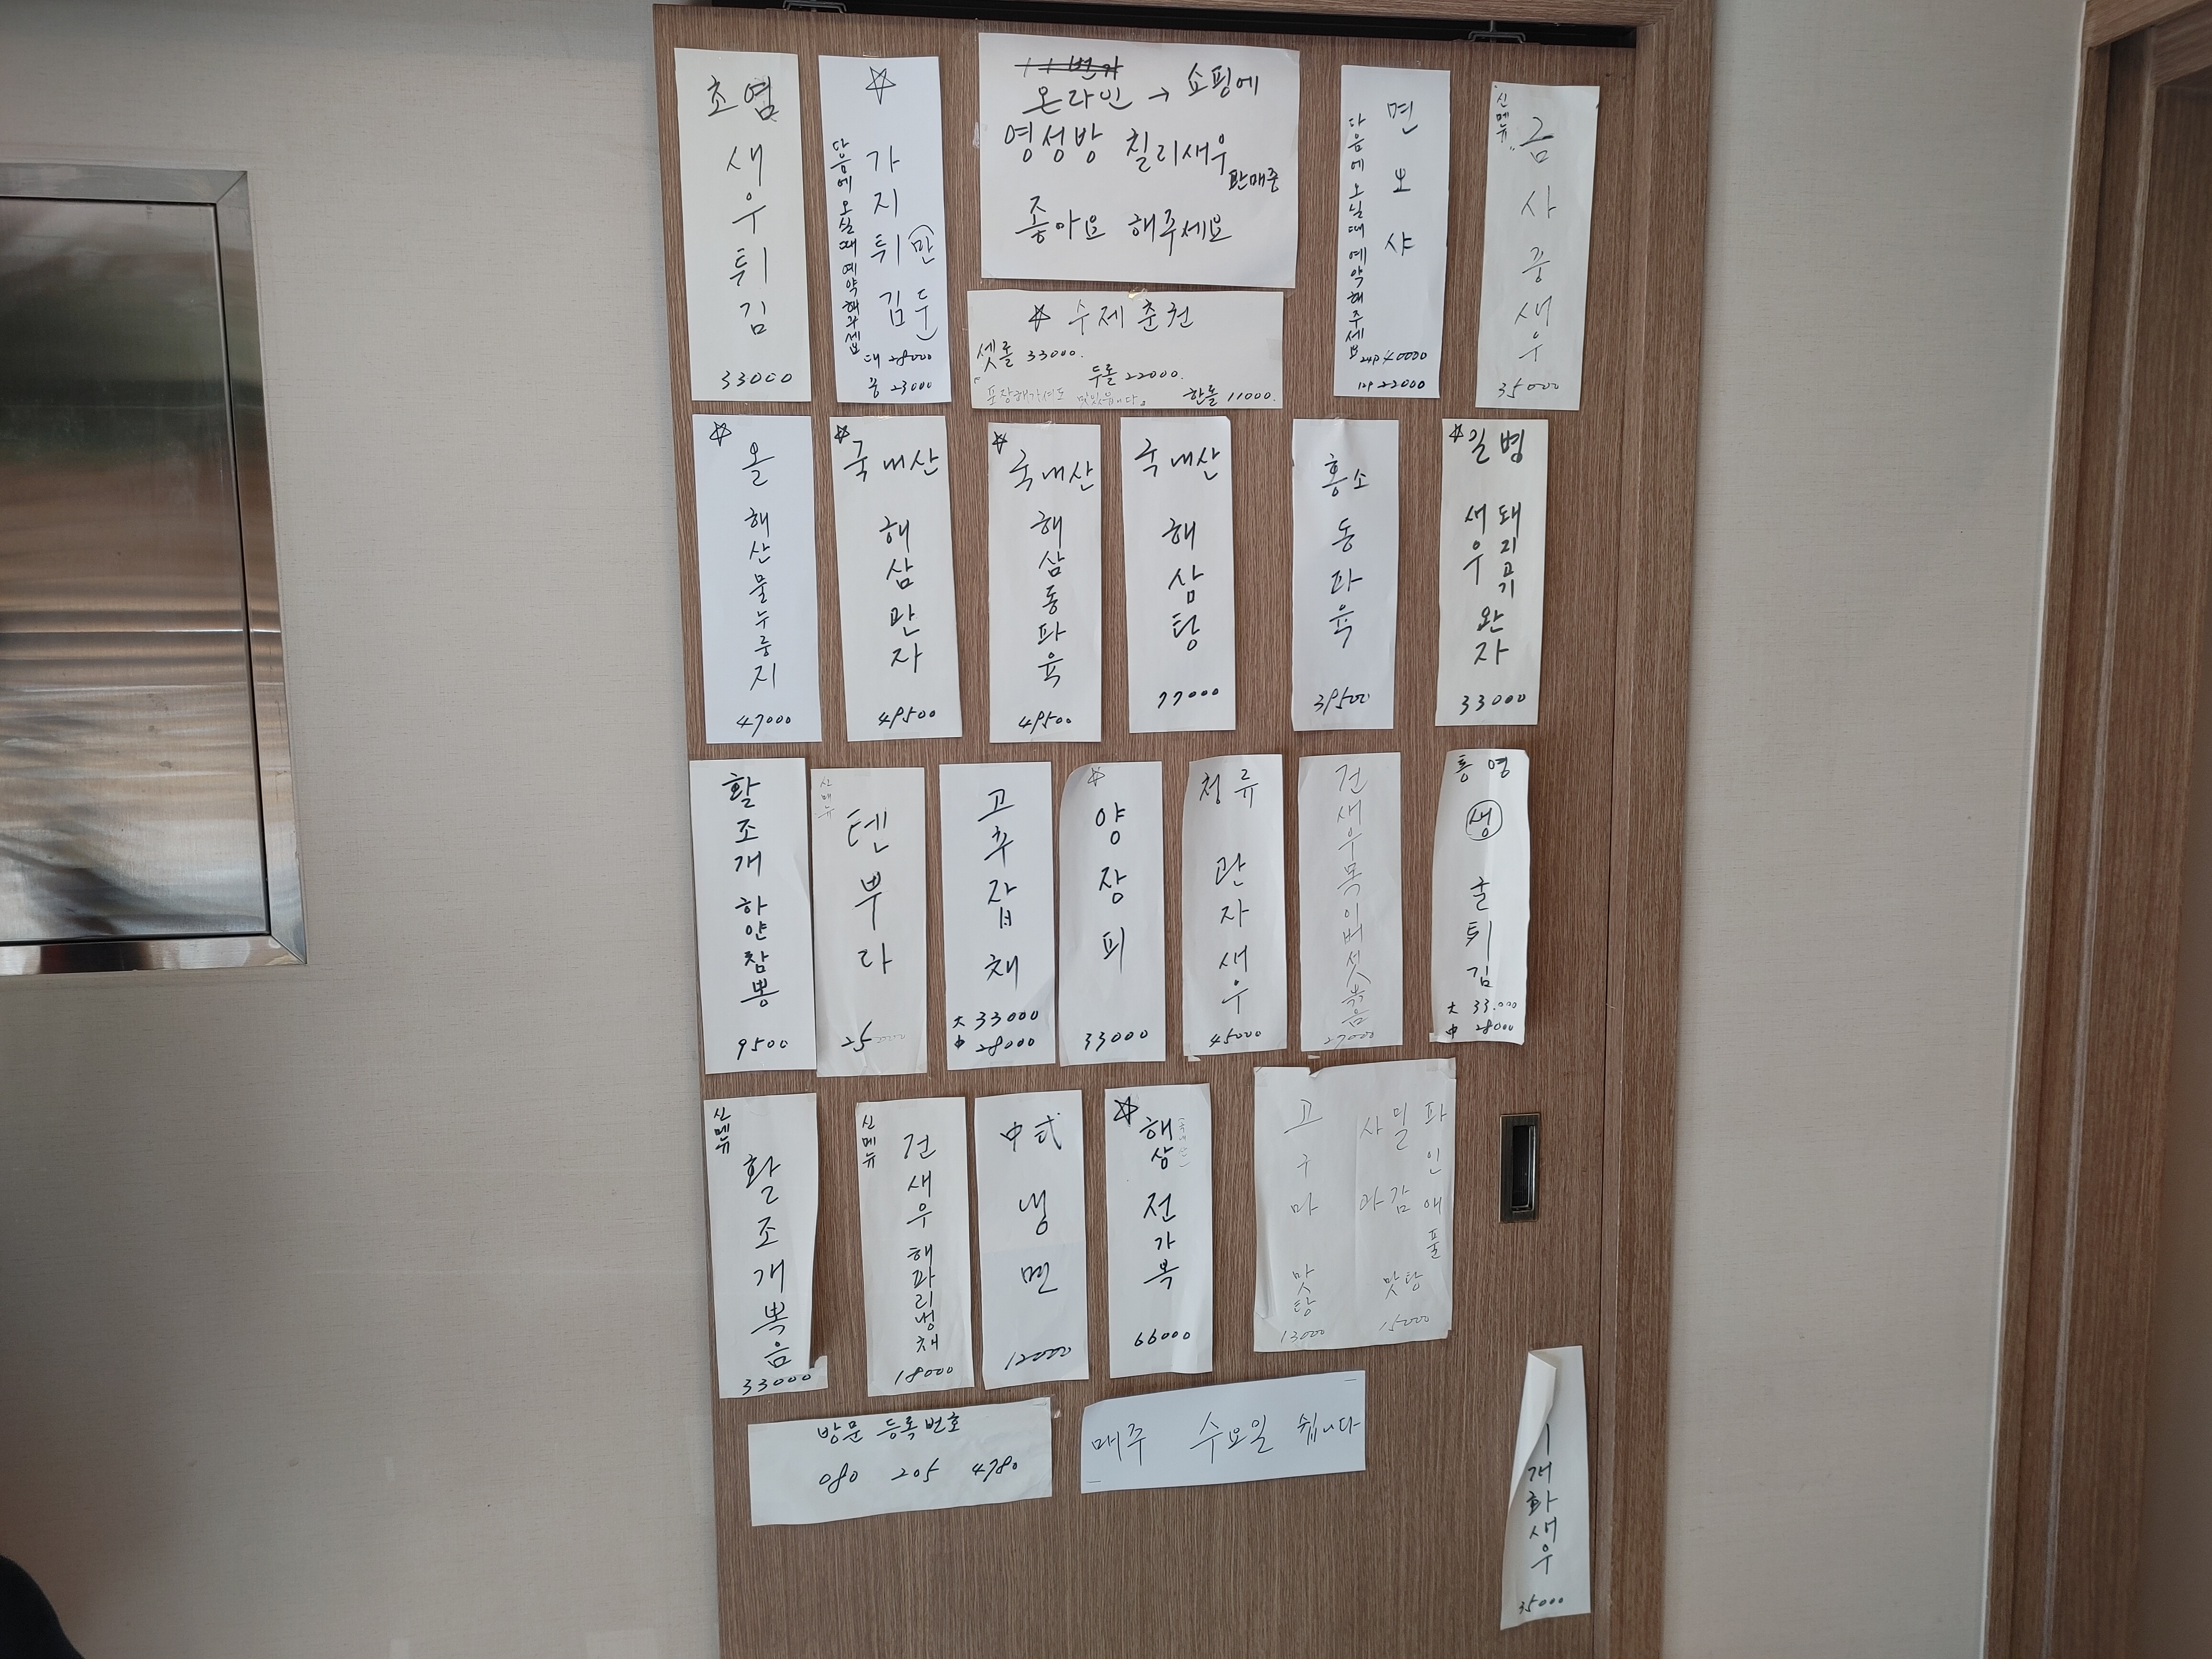 초염
새우튀김
33000
☆
가지튀김
만두
다음에 오실때 예약해주세요
대 28000
중 23000
온라인 → 쇼핑에
영성방 칠리새우
판매중
좋아요 해주세요
☆ 수제춘권
셋롤 33000.
두롤 22000.
한롤 11000.
포장해가셔도 맛있습니다。
면보샤
다음에 오실때 예약해주세요
24P 40000
12P 22000
신메뉴
금사중새우
35000
☆
올 해산물누룽지
47000
☆
국내산
해삼관자
49500
☆
국내산
해삼통파육
49500
국내산
해삼탕
77000
홍소
동파육
39500
☆
일병
돼지고기
새우
완자
33000
활조개 하얀짬뽕
9500
신메뉴
텐뿌라
25000
고추잡채
大 33000
中 28000
☆
양장피
33000
청류
관자새우
45000
건새우목이버섯볶음
27000
통영
생
굴튀김
大 33.000
中 28000
신메뉴
활조개볶음
33000
신메뉴
건새우 해파리냉채
18000
中式
냉면
12000
☆
해삼
(국내산)
전가복
66000
고구마 맛탕
13000
파인애풀
밀감
사과
맛탕
15000
방문 등록번호
080 205 4780
매주 수요일 쉽니다
개화새우
35000